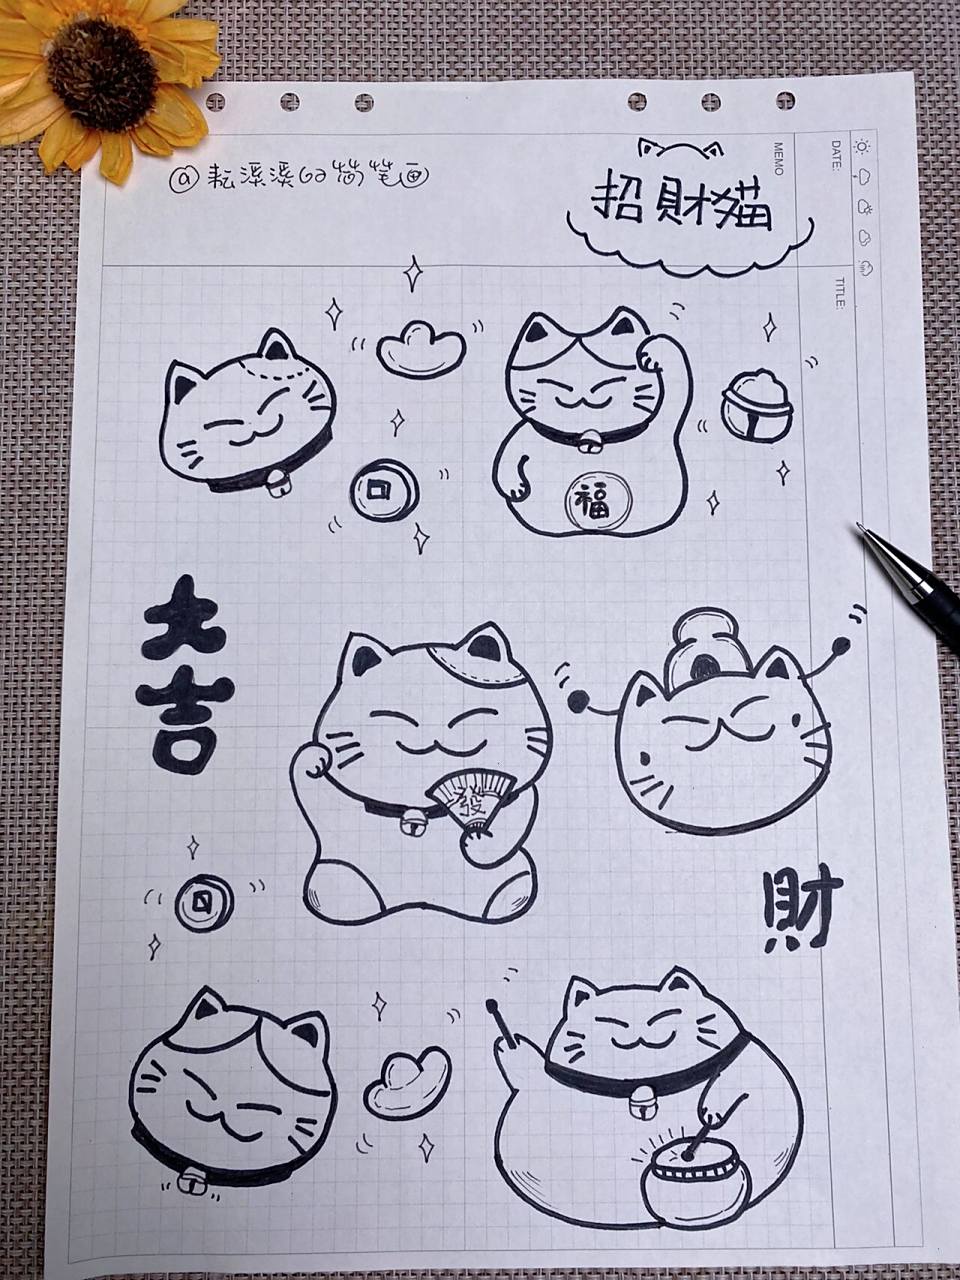 @耘溪溪的简笔画
招財猫
MEMO
DATE:
TITLE:
福
大
吉
發
財